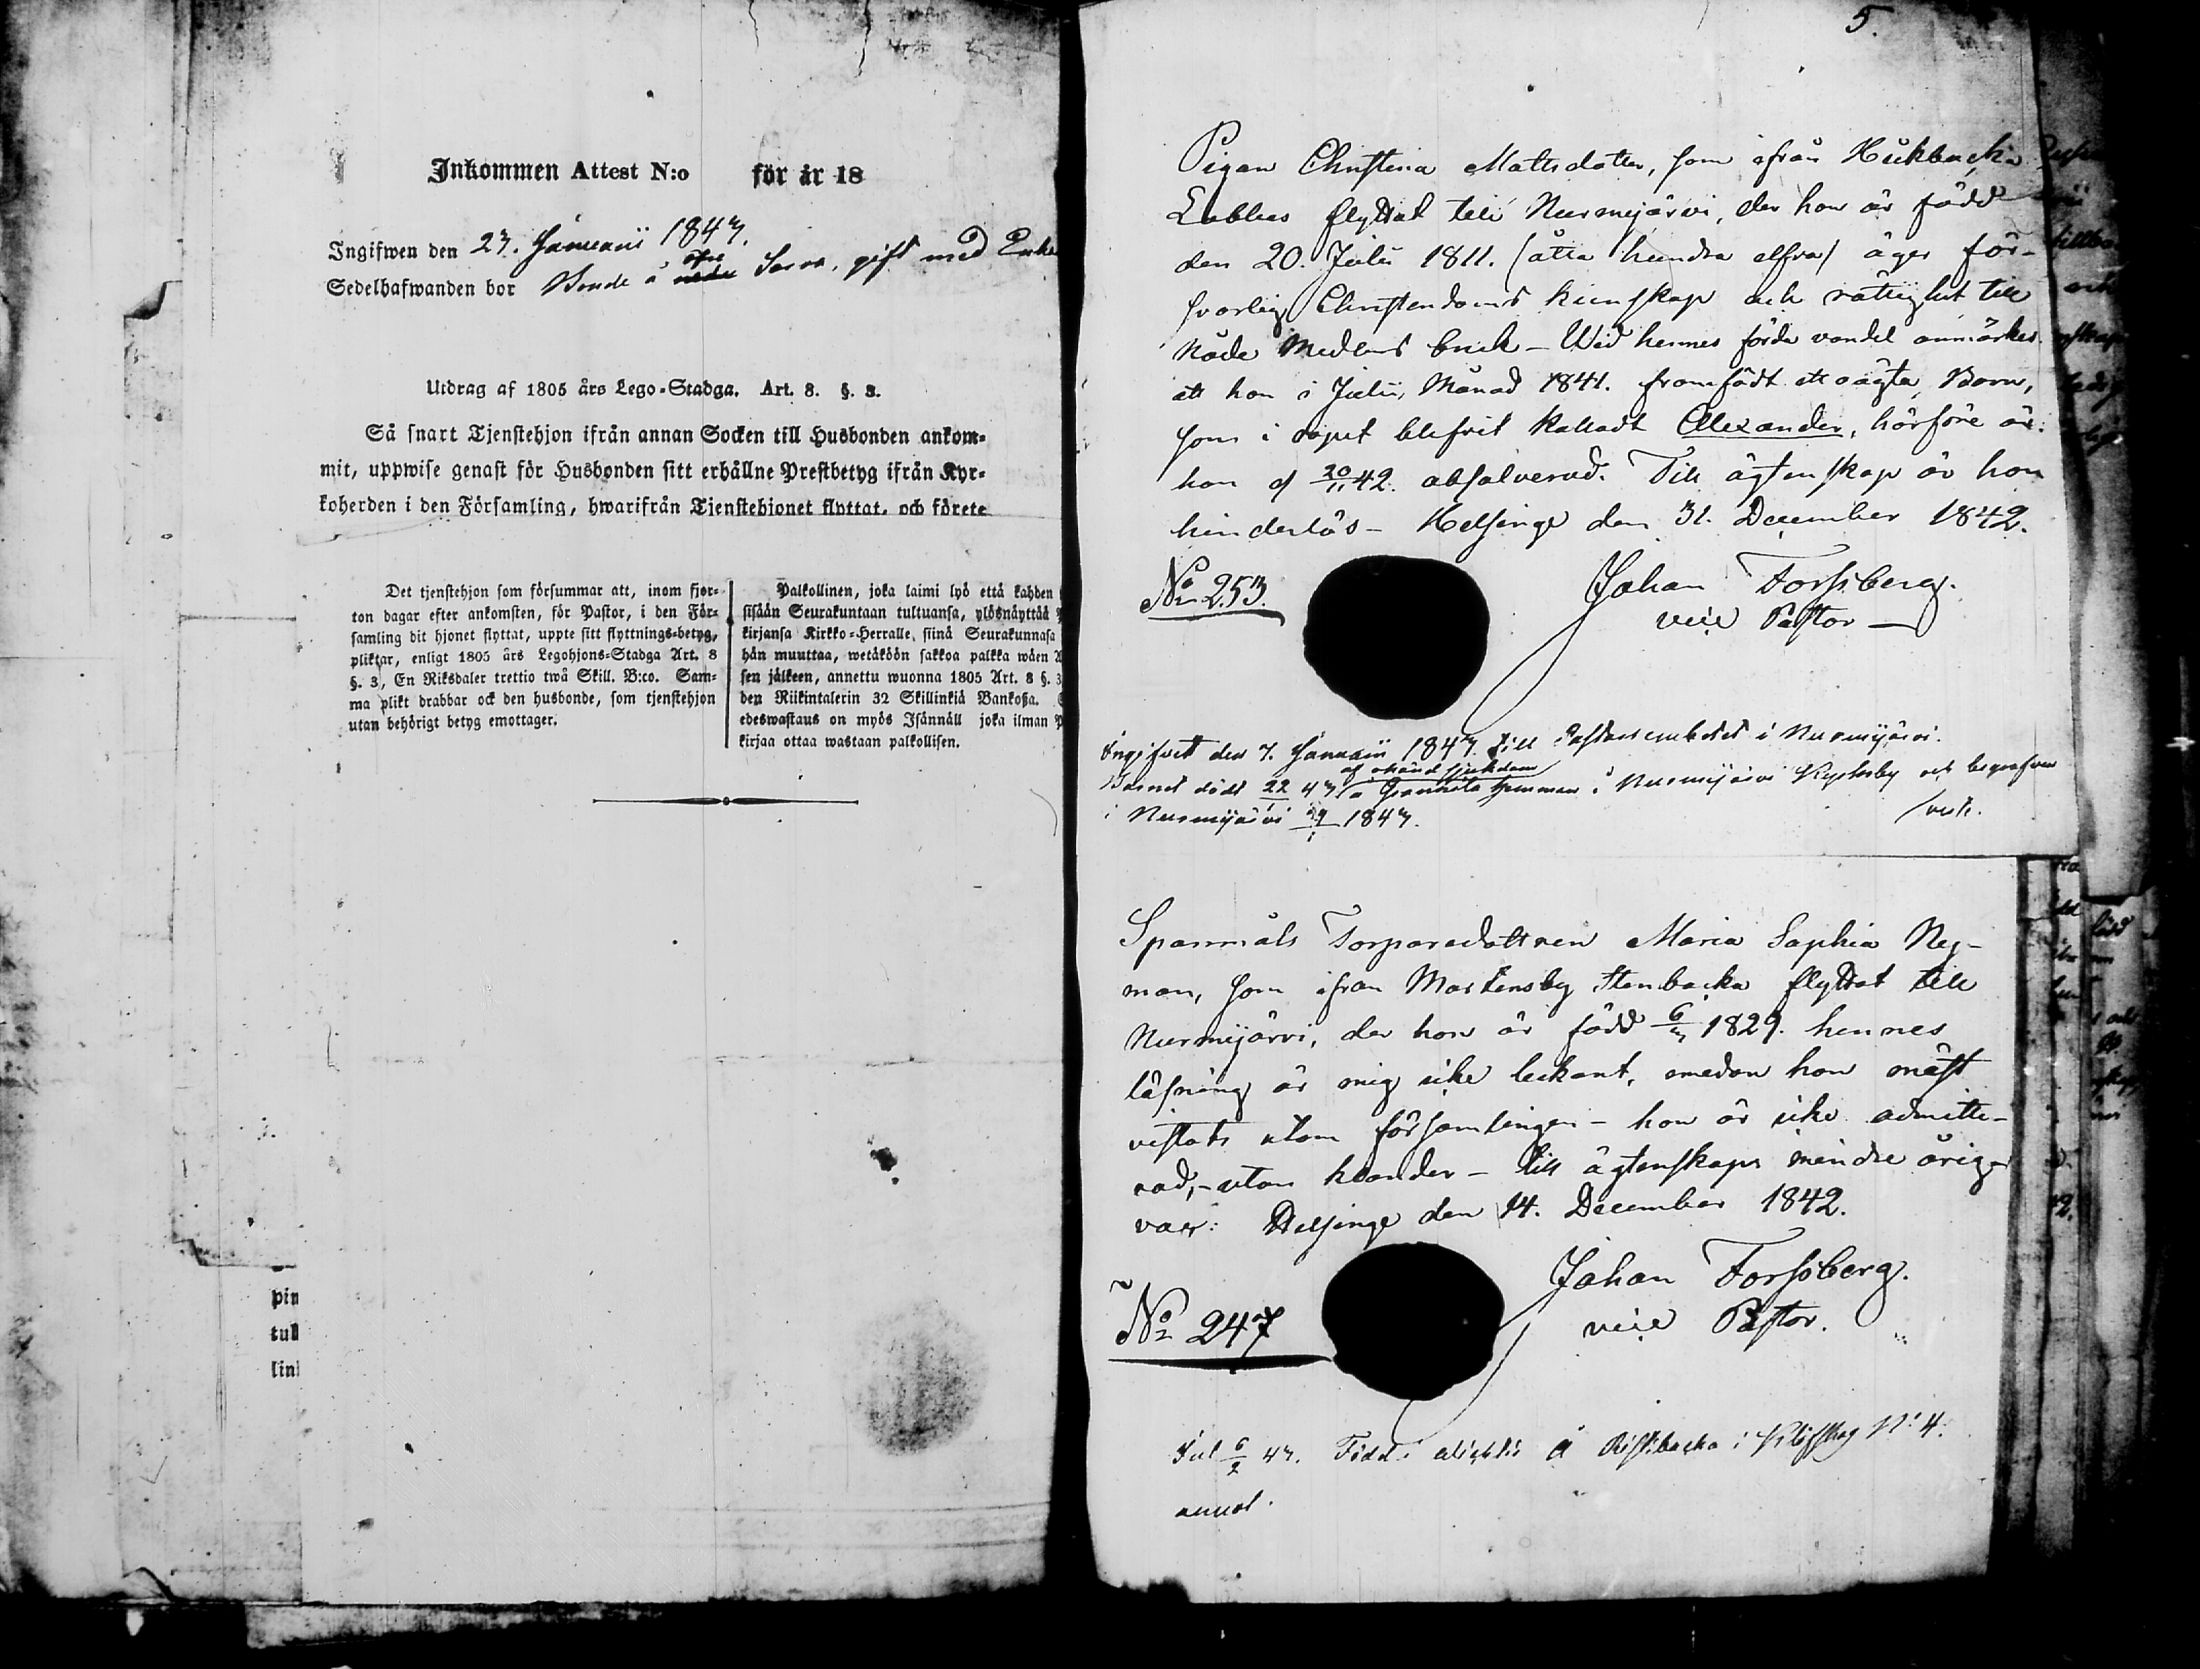 Inkommen Attest N:o för år 18
Ingifwen den 23. Januarii 1843.
Sedelhafwanden bor Bonde å öfre Sorva, gift med Enka
Utdrag af 1805 års Lego-Stadga. Art. 8. §. 3.
Så snart Tjenstehjon ifrån annan Socken till Husbonden ankom-
mit, uppwise genast för Husbonden sitt erhållne Prestbetyg ifrån Kyr-
koherden i den Församling, hwarifrån Tjenstehjonet flyttat, och förete
Det tjenstehjon som försummar att, inom fjor-
ton dagar efter ankomsten, för Pastor, i den För-
samling dit hjonet flyttat, uppte sitt flyttnings-betyg,
pliktar, enligt 1805 års Legohjons-Stadga Art. 8
§. 3, En Riksdaler trettio twå Skill. B:co. Sam-
ma plikt drabbar ock den husbonde, som tjenstehjon
utan behörigt betyg emottager.
Palkollinen, joka laimi lyö että kahden
sisään Seurakuntaan tultuansa, ylösnäyttää
kirjansa Kirkko-Herralle, siinä Seurakunnasa
hän muuttaa, wetäköön sakkoa palkka wäen
sen jälkeen, annettu wuonna 1805 Art. 8 §. 3
den Riikintalerin 32 Skillinkiä Bankoßa.
edeswastaus on myös Isännäll joka ilman
kirjaa ottaa wastaan palkollisen.
pin
tull
lin
5.
Pigan Christina Mattsdotter, som ifrån Hükbacka
Labbas flyttat till Nurmijärvi, der hon är född
den 20. Julii 1811. (åtta hundra elfva) äger för-
svarlig Christendoms kunskap och rättighet till
Nåde Medlens bruk - Wid hennes förda vandel anmärkes
att hon i Julii Månad 1841. framfödt ett oägta Barn,
som i dopet blifvit kalladt Alexander, härföre är
hon d 20/11 42. absolverad. Till ägtenskap är hon
hinderlös - Helsinge den 31. December 1842.
No 253. Johan Forssberg.
vice Pastor
Ingifvet den 7. Januarii 1843 till Pastorsembetet i Nurmijärvi.
af okänd sjukdom
Barnet dödt 22/1 43 å hemman i Nurmijärvi Kyrkoby och begrafven
i Nurmijärvi 29/1 1843.
Spanmåls Torparedottren Maria Sophia Ny-
man, som ifrån Mårtensby Stenbacka flyttat till
Nurmijärvi, der hon är född 6/3 1829. hennes
läsning är mig icke bekant, emedan hon mäst
vistats utom församlingen - hon är icke admitte-
rad, - utan - till ägtenskaps mindre årig
var: Helsinge den 14. December 1842.
No 247 Johan Forssberg.
vice Pastor.
6/2 43. Född å i N:o 4.